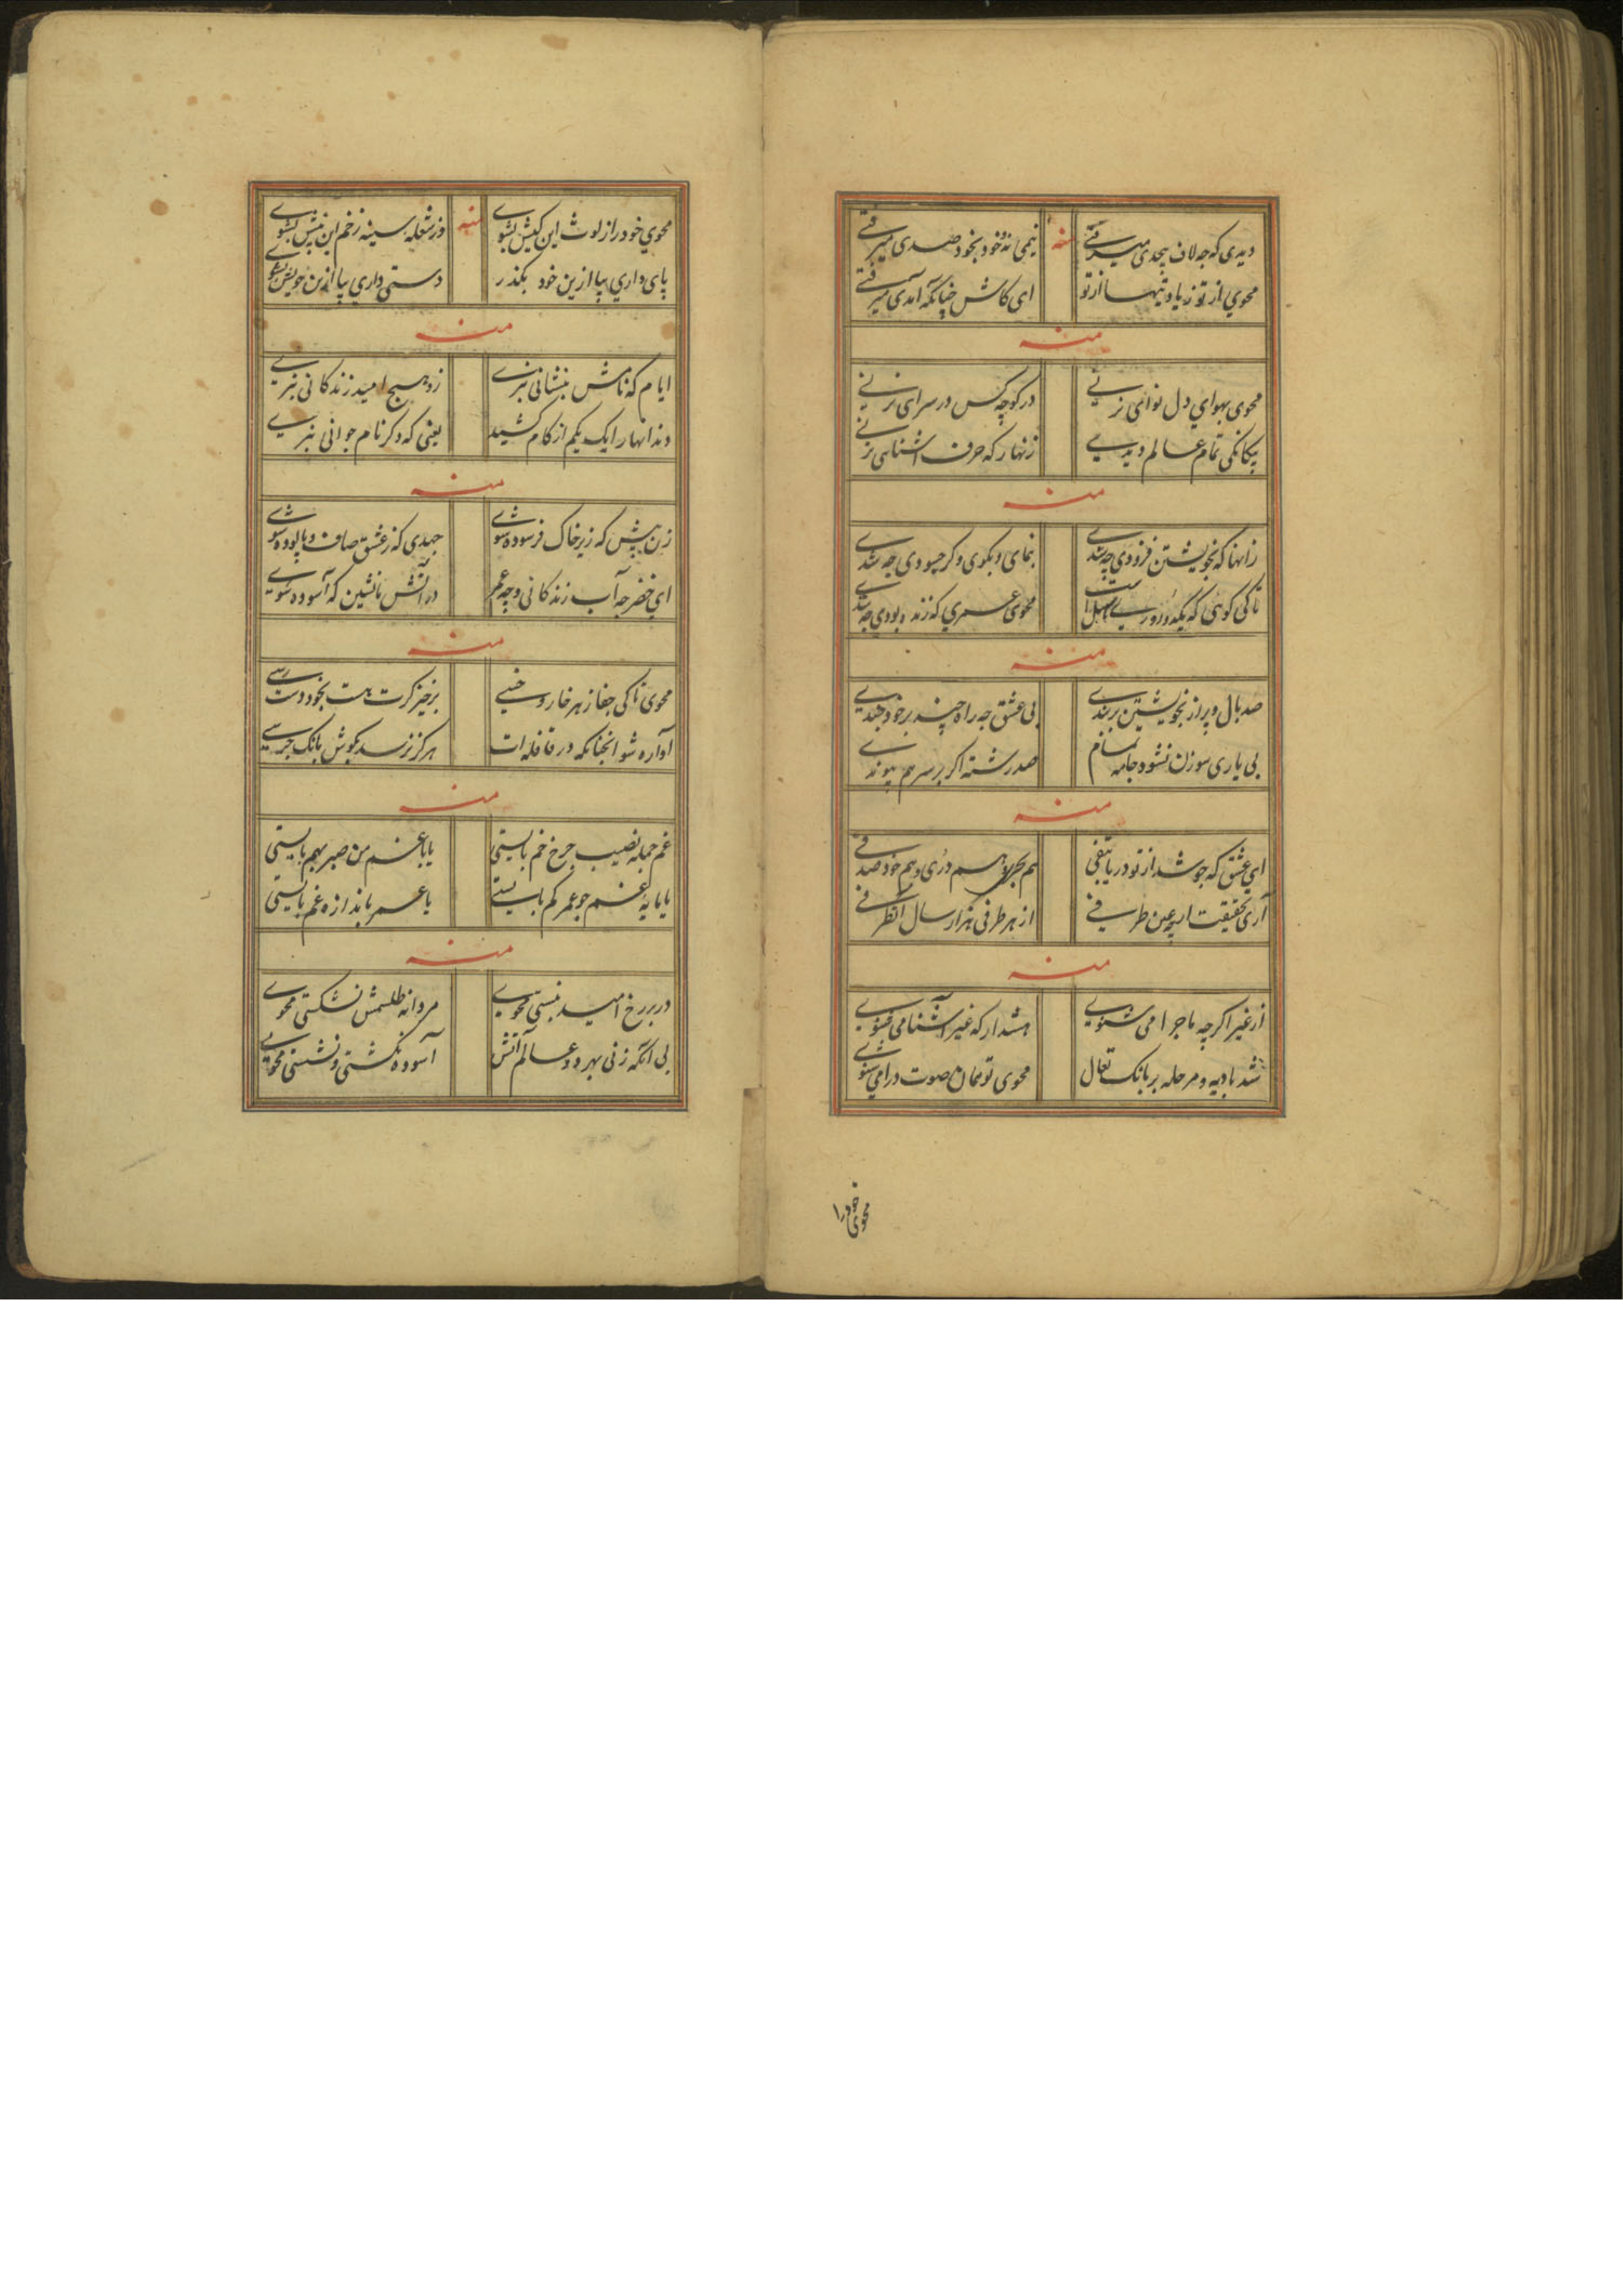 دیدی که چه لاف بیحدی میرفتی
منه
نیمی نه و خود بخود صدی میرفتی
محوی از تو زیاد و تنها از تو
ای کاش چنانکه آمدی میرفتی
منه
محوی بهوای دل نوائی نزنی
در کوچه کس در سرای نزنی
بیکانکی تمام عالم دیدی
زنهار که حرف آشنائی نزنی
منه
زانها که بخویشتن فزودی چه شدی
بنمای و بکوی و کر چه بودی چه شدی
تا کی کوئی که یکدو روری
محوی عمری که زنده بودی چه شدی
منه
صد بال و پر از بخویشتن بربندی
بی عشق چه راه چند بر خود خندی
بی یاری سوزن نشود جامه تمام
صد رشته اکر بر سر هم پیوندی
منه
ای عشق که جوشد از تو دریا بتفی
هم بحری و هم دری و هم خود صدفی
آری حقیقت ار چه عین طرفی
از هر طرفی هزار سال آنطرفی
منه
از غیر اکر چه ماجرا می شنوی
هشدار که غیر آشنا می شنوی
شد بادیه و مرحله بر بانک تعال
محوی تو همان صوت درا می شنوی
محوی خود را
محوی خود را ز لوث این کیش بشوی
منه
وز شعله سینه زخم این نیش بشوی
پای داری بیا ازین خود بکذر
دستی داری بیا ازین خویش بشوی
منه
ایام که نامش بنشانی نبری
زو هیچ امید زندکانی نبری
دندانها را یک یکم از کام کشید
یعنی که دکر نام جوانی نبری
منه
زن پیش که زیر خاک فرسوده شوی
جهدی که ز عشق صاف و پالوده شوی
ای خضر چه آب زندکانی و چه عمر
در آتش ما نشین که آسوده شوی
منه
محوی تا کی جفا ز هر خار و خسی
برخیز کرت هست بخود دست رسی
آواره شو آنچنانکه در قافله ات
هرکز نرسد بکوش بانک جرسی
منه
غم جمله نصیب چرخ خم بایستی
یا با غم من صبر بهم بایستی
یا مایه غم چو عمر کم بایستی
یا عمر باندازه غم بایستی
منه
در بر رخ امید نبستی محوی
مردانه طلسمش نشکستی محوی
بی آنکه زنی بهر دو عالم آتش
آسوده نکشتی و نشستی محوی